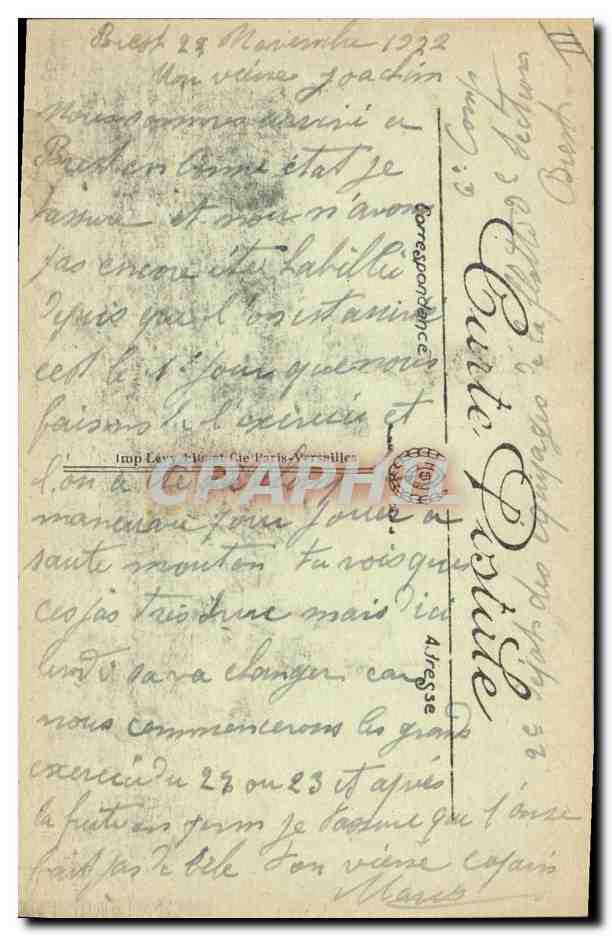 Brest 22 Novembre 1922
Mon vieux Joachim
Nous sommes arrivé a
Brest en bonne état je
tassure et nous n'avon
pas encore étée habillée
depuis que l'on est arrivé
cest le 1r jour que nous
faisons de l'exercice et
l'on a
manœuvre pour jouer a
saute mouton tu vois que
ces pas très dure mais d'ici
lundi sa va changer car
nous commencerons les grands
exercice du 22 ou 23 et après
la fruite en ferm je tassure que l'on se
fait pas de bile Ton vieux copain
Marc
Correspondance
Carte Postale
Adresse
Imp Lévy Fils et Cie Paris-Versailles
CPAPHIL
2e dépôt des équipages de la flotte
Brest
III